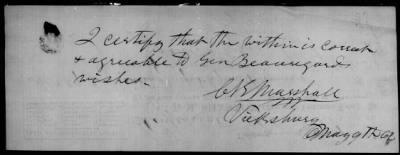 I certify that the within is correct
& agreeable to Gen Beauregards
wishes.
C K Marshall
Vicksburg
May 9th 62